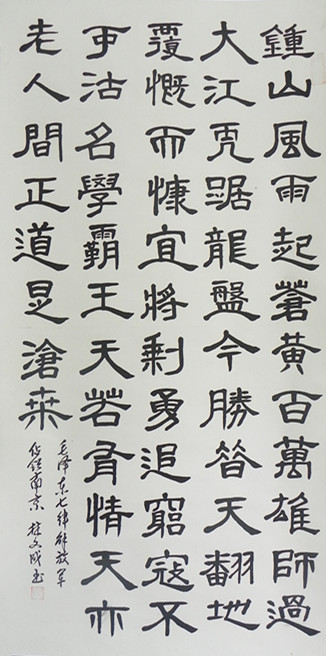 鍾山風雨起蒼黃百萬雄師過
大江虎踞龍盤今勝昔天翻地
覆慨而慷宜將剩勇追窮寇不
可沽名學霸王天若有情天亦
老人間正道是滄桑
毛澤东七律解放军
佔領南京 書